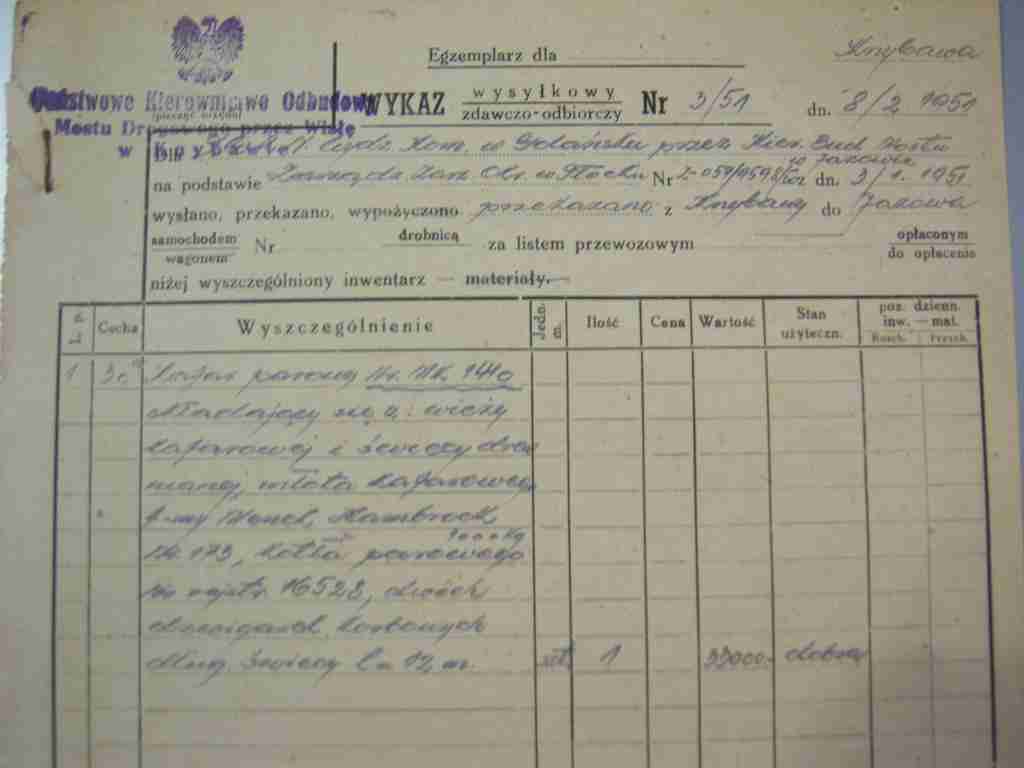 Egzemplarz dla Knybawa
Państwowe Kierownictwo Odbudowy
Mostu Drogowego przez Wisłę
w Knybawie
WYKAZ wysyłkowy
zdawczo-odbiorczy Nr 3/51 dn. 8/2 1951
Dla Kom. w Gdańsku przez Kier. Bud. Mostu
w
na podstawie Nr dn. 3/1. 1951
wysłano, przekazano, wypożyczono przekazano z Knybawy do
samochodem
wagonem Nr drobnicą za listem przewozowym opłaconym
do opłacenia
niżej wyszczególniony inwentarz — materiały.
L. p. Cecha Wyszczególnienie Jedn. m. Ilość Cena Wartość Stan użyteczn. poz. dzienn. inw. — mat.
Rozch. Przych.
1 Kafar parowy Nr.
składający się z: wieży
kafarowej i świecy drew
nianej, młota kafarowego
f-my Menck, Hambrock,
1000 kg
Nr 173, kotła parowego
Nr rejstr. 16528, dwóch
dźwigarek korbowych
dług. świecy l = 12 m. szt. 1 33000.- dobry